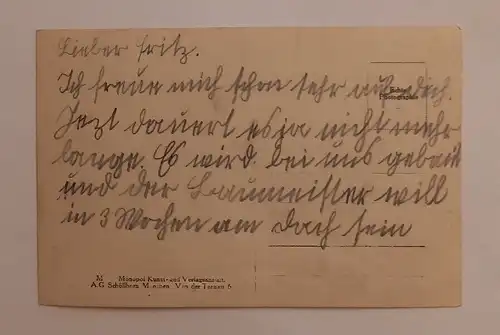 Lieber Fritz.
Ich freue mich schon sehr auf dich.
Echte
Photographie
Jezt dauert es ja nicht mehr
lange. Es wird bei uns gebaut
und der Baumeister will
in 3 Wochen am Dach sein
M Monopol Kunst- und Verlagsanstalt
A.G. München Von der Tannstr. 6